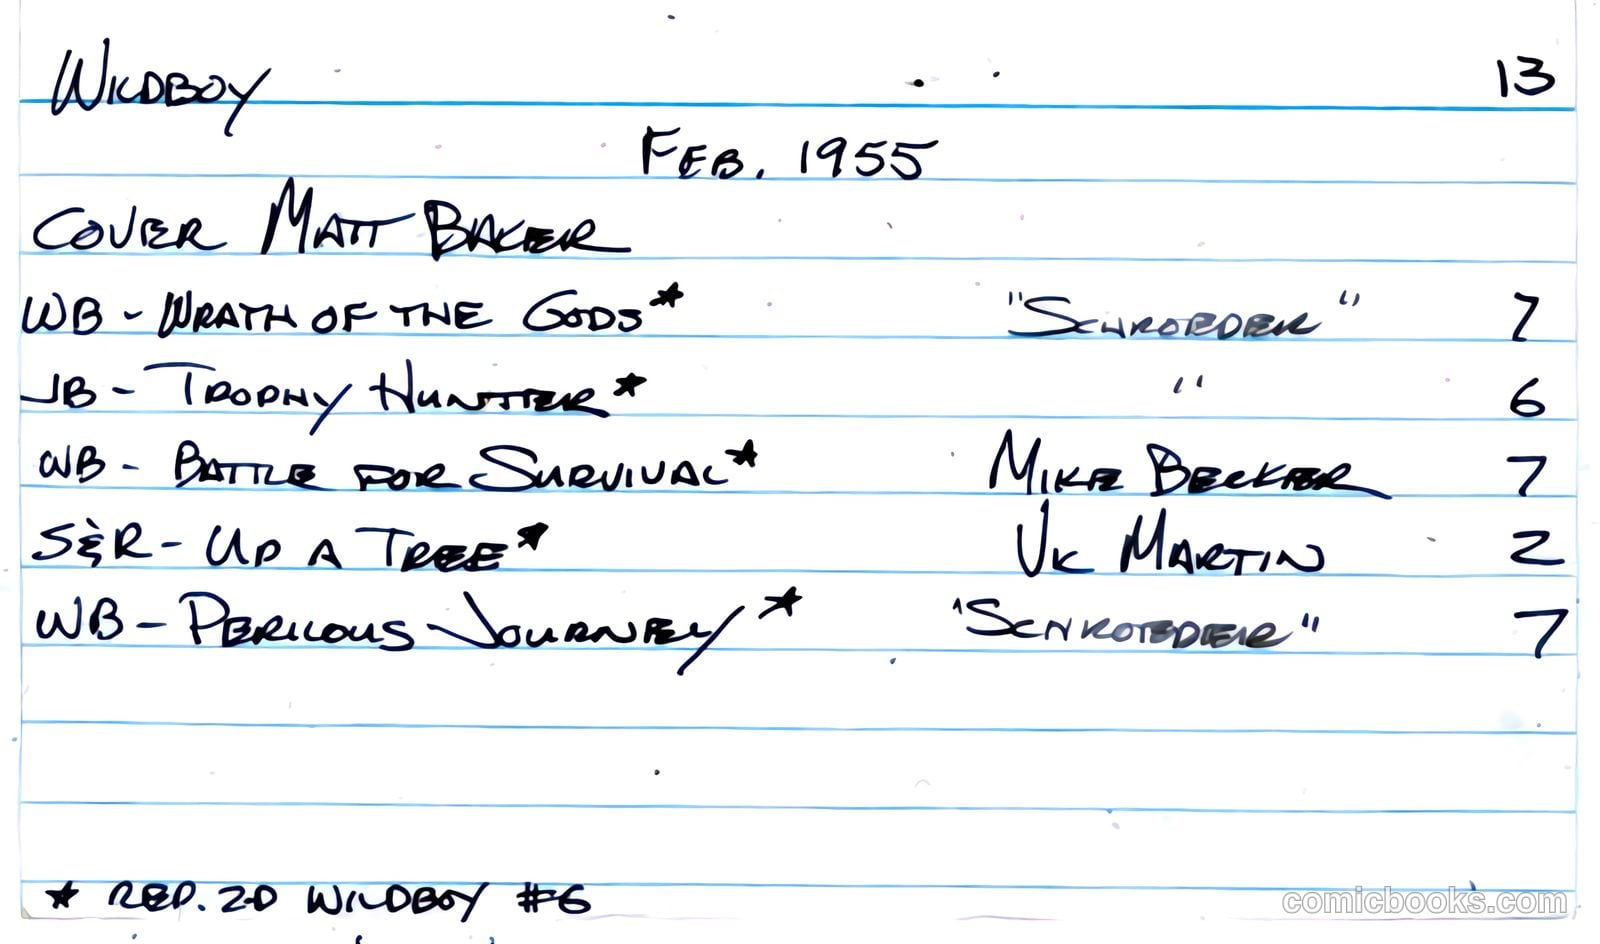 WILDBOY 13
FEB. 1955
COVER MATT BAKER
WB - WRATH OF THE GODS★ "SCHROEDER" 7
JB - TROPHY HUNTER★ " 6
WB - BATTLE FOR SURVIVAL★ MIKE BECKER 7
S&R - UP A TREE★ VK MARTIN 2
WB - PERILOUS JOURNEY★ "SCHROEDER" 7
★ REP. Z-D WILDBOY #6
comicbooks.com